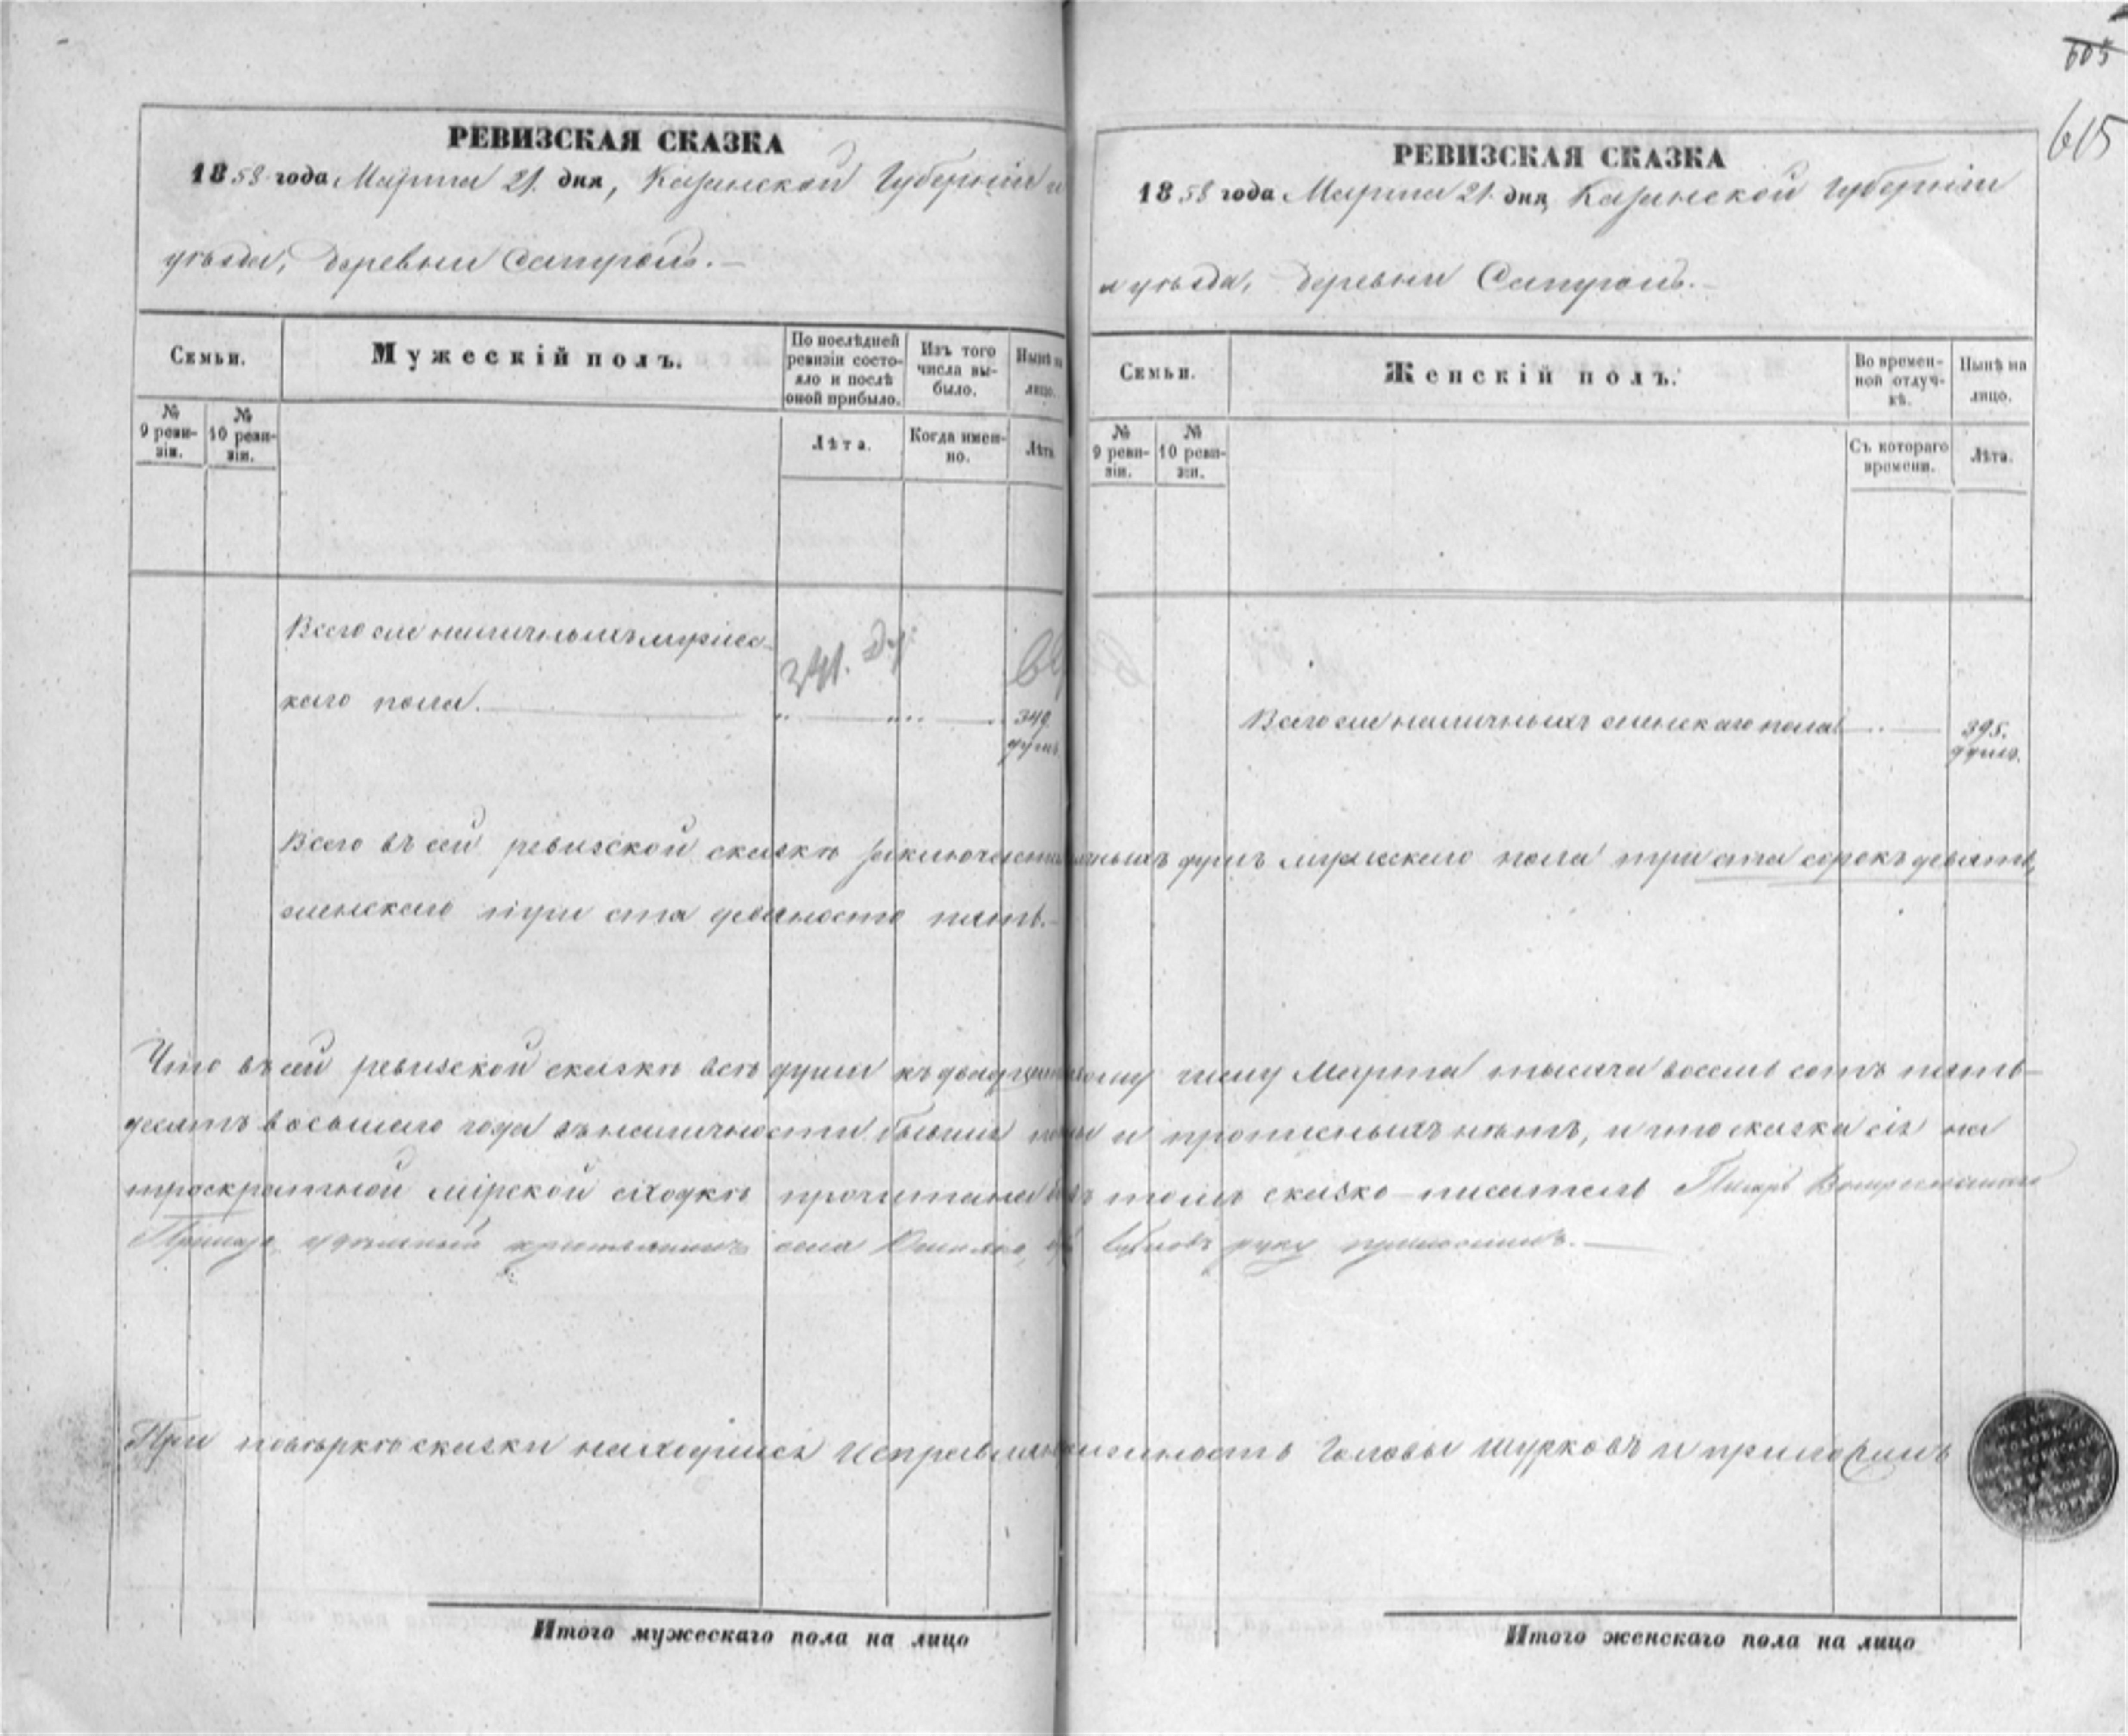 605
615
РЕВИЗСКАЯ СКАЗКА
1858 года Марта 21. дня, Казанской Губернiи и
уѣзда, деревни Сапуголь.
Семьи.
Мужескiй полъ.
По послѣдней ревизiи состояло и послѣ оной прибыло.
Изъ того числа выбыло.
Нынѣ на лицо.
№ 9 ревизiи.
№ 10 ревизiи.
Лѣта.
Когда именно.
Лѣта
Всего же наличныхъ мужес-
каго пола.
349.
душъ
РЕВИЗСКАЯ СКАЗКА
1858 года Марта 21. дня, Казанской Губернiи
и уѣзда, деревни
Семьи.
Женскiй полъ.
Во временной отлучкѣ.
Нынѣ на лицо.
№ 9 ревизiи.
№ 10 ревизiи.
Съ котораго времени.
Лѣта.
Всего же наличныхъ женскаго пола
395.
душъ.
Всего въ сей ревизской сказкѣ душъ мужескаго пола три ста сорокъ девять,
женскаго три ста девяносто пять.
Что въ сей ревизской сказкѣ всѣ души къ числу Марта тысяча восемь сотъ пять-
десятъ восьмаго года въ наличности и прописныхъ нѣтъ, и что сказка сiя на
троекратной мiрской сходкѣ прочитана въ томъ сказко-писатель Писарь
Приказа, удѣльный крестьянинъ села руку приложилъ.
При повѣркѣ сказки находился должность Головы Шурковъ и приложилъ
Итого мужескаго пола на лицо
Итого женскаго пола на лицо